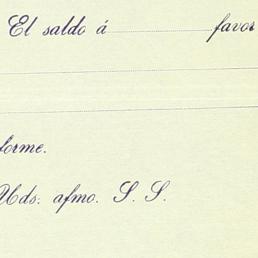 El saldo á favor
forme.
Uds. afmo. S. S.